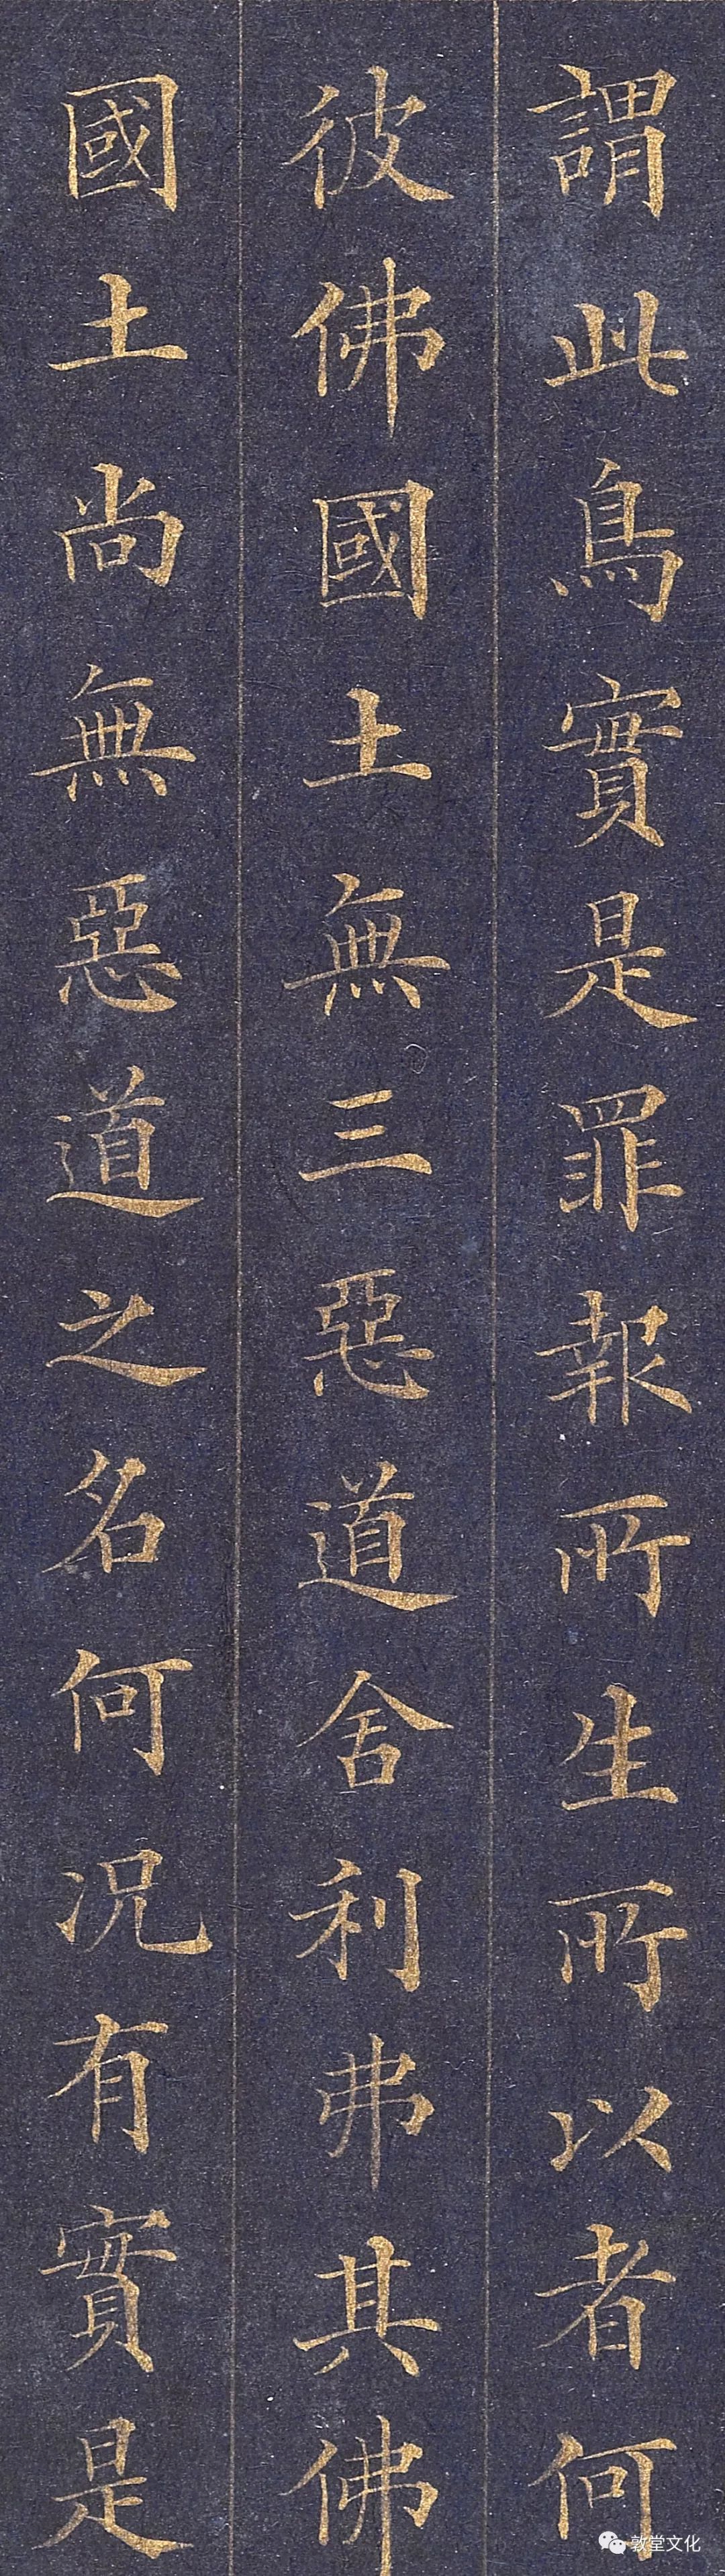 謂此鳥實是罪報所生所以者何
彼佛國土無三惡道舍利弗其佛
國土尚無惡道之名何况有實是
敦堂文化